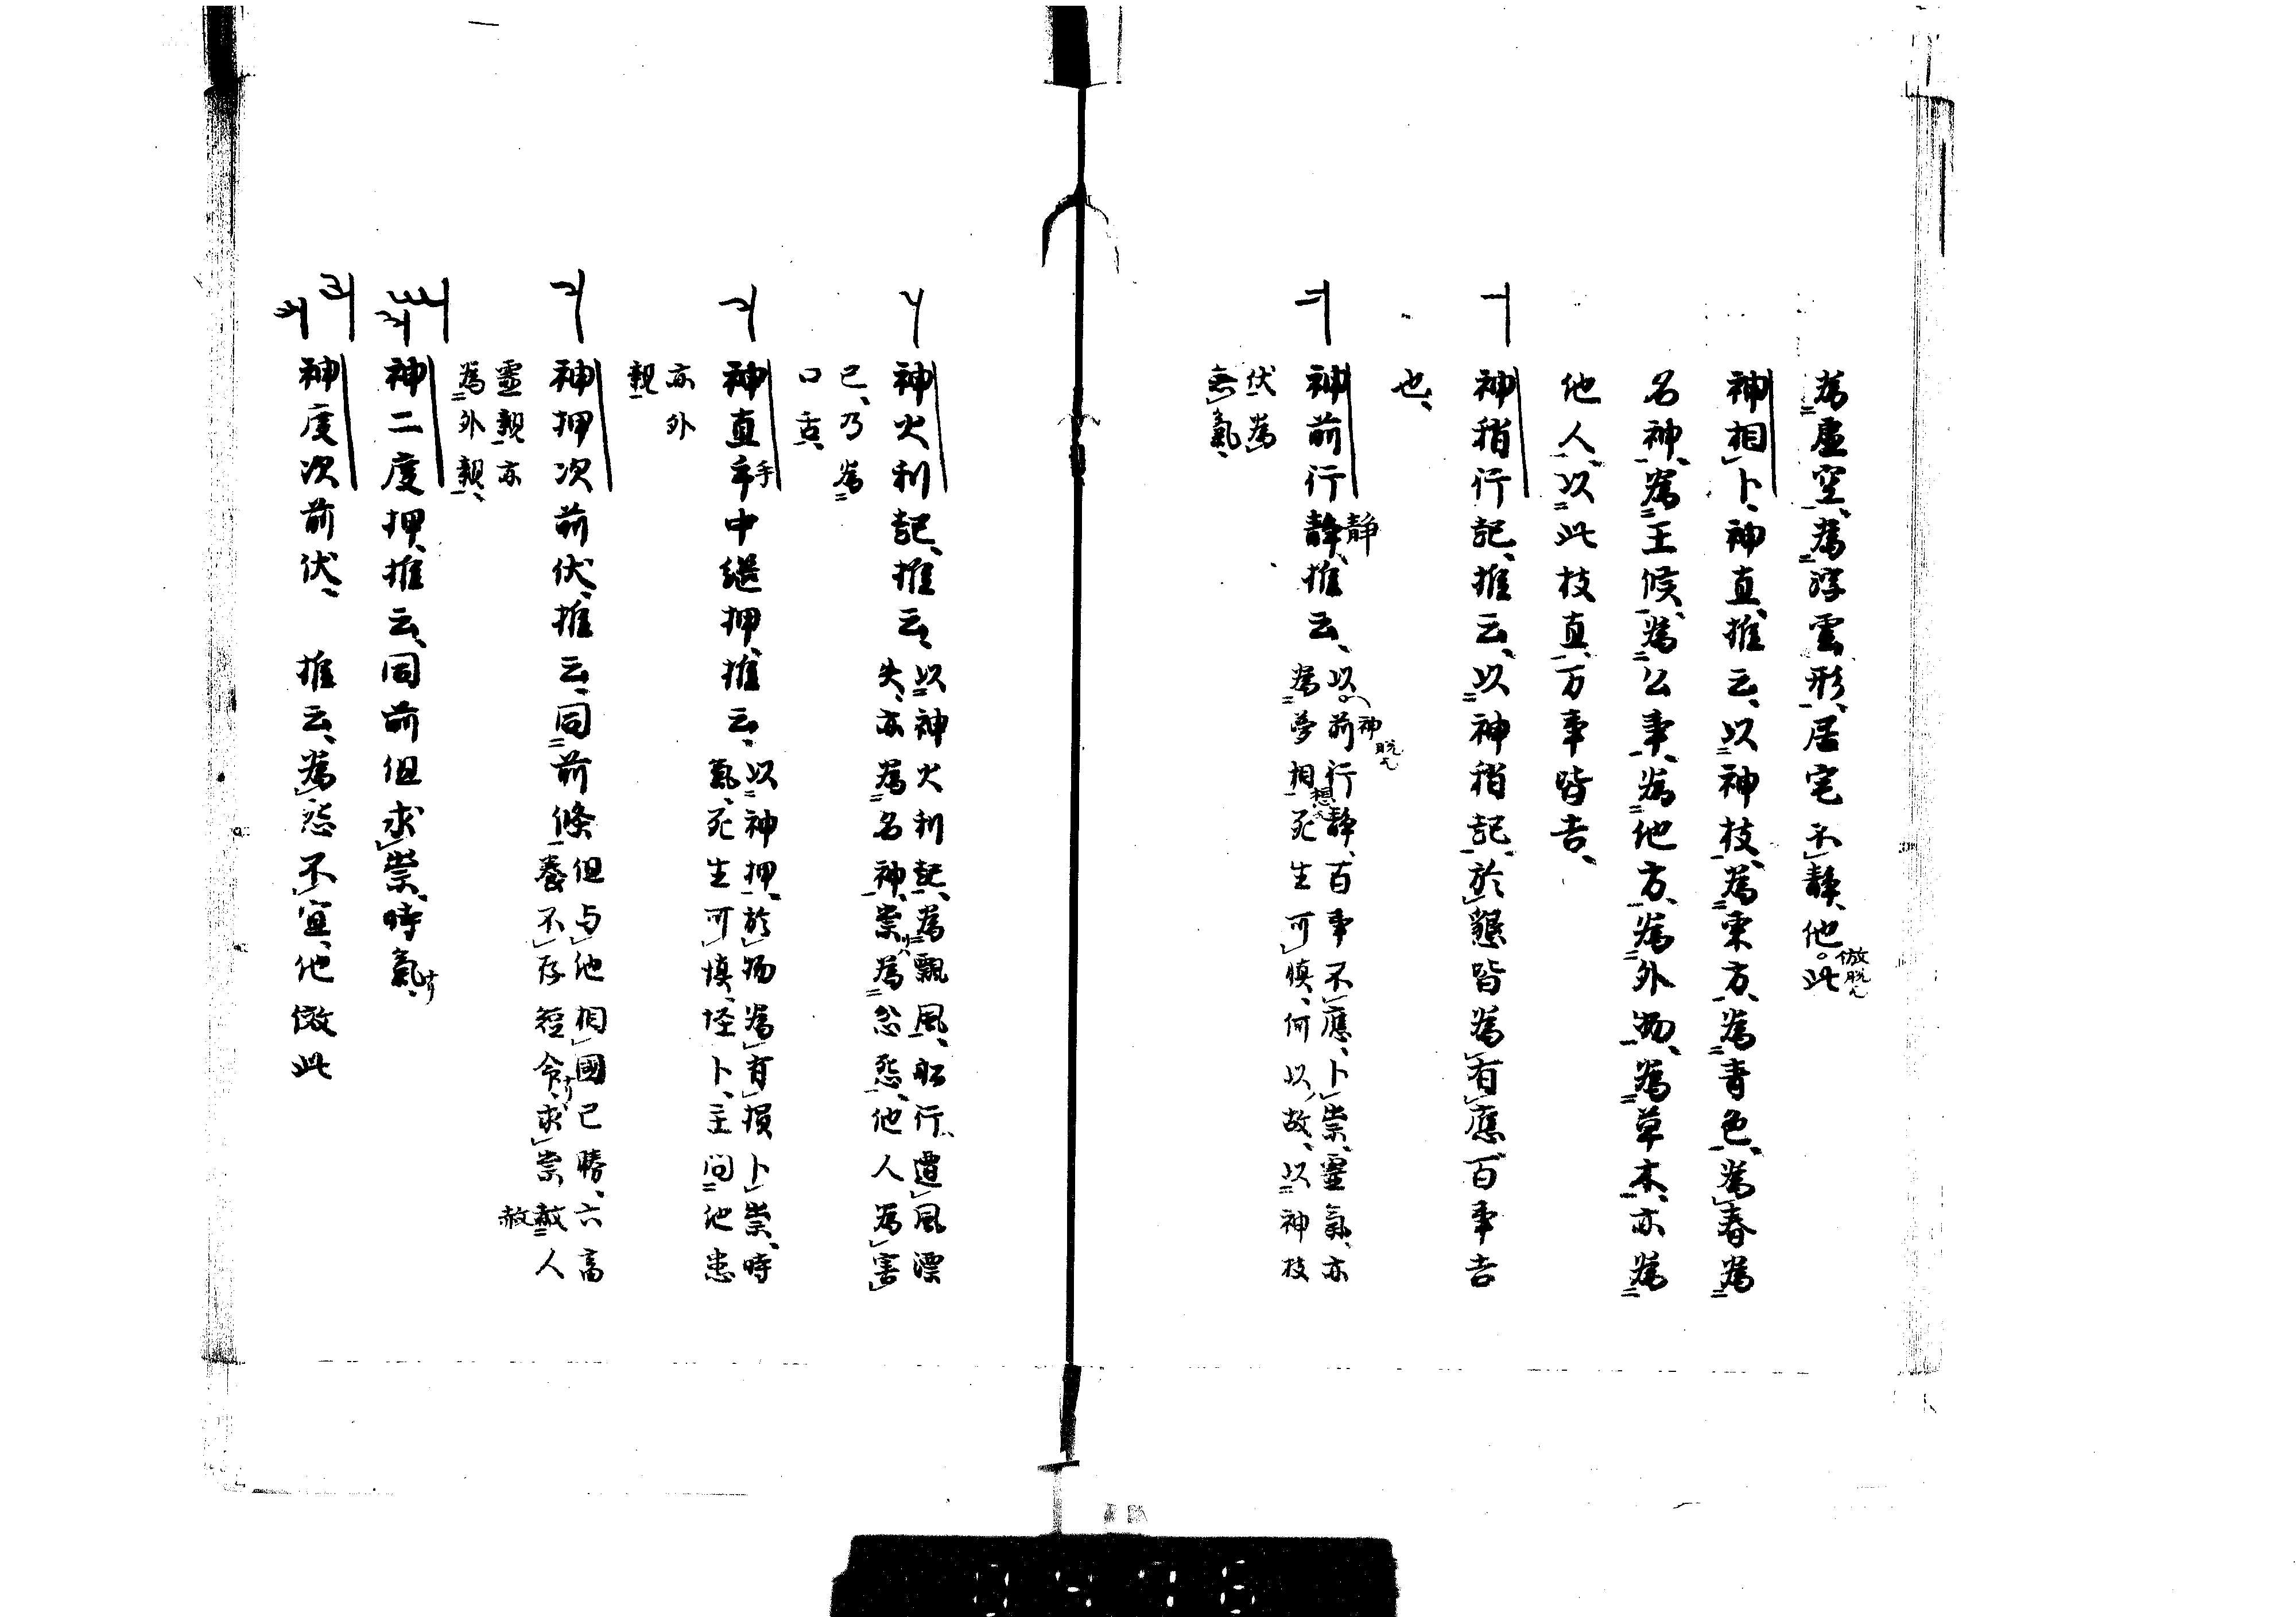 為虚空、為浮雲形、居宅不静、他。此
倣脱乀
神相卜、神直、推云、以神枝、為東方、為青色、為春為
名神、為王候、為公事、為他方、為外物、為草木、亦為
他人、以此枝直、万事皆吉、
神稍行記、推云、以神稍記、於懇皆為有應、百事吉
也、
神前行静、推云、
静
以。前行静、百事不應、卜祟、霊氣、亦
神脱乀
為夢相死生可慎、何以故、以神枝
想
伏為
無氣、
神火利記、推云、
以神火利記、為飄風、船行、遭風漂
失、亦為名神、祟為忿怨、他人為害
已、乃為
口舌、
神直年中継押、推云、
手
以神押、於物為有損卜祟、時
氣、死生可慎、怪卜、主同他患
亦外
親
神押次前伏、推云、同前條
但与他相國已勝、六畜
養不存短命、求祟赦人
赦
霊親亦
為外親、
神二度押、推云、同前但求祟、時氣、
神度次前伏、 推云、為怨不宜、他倣此